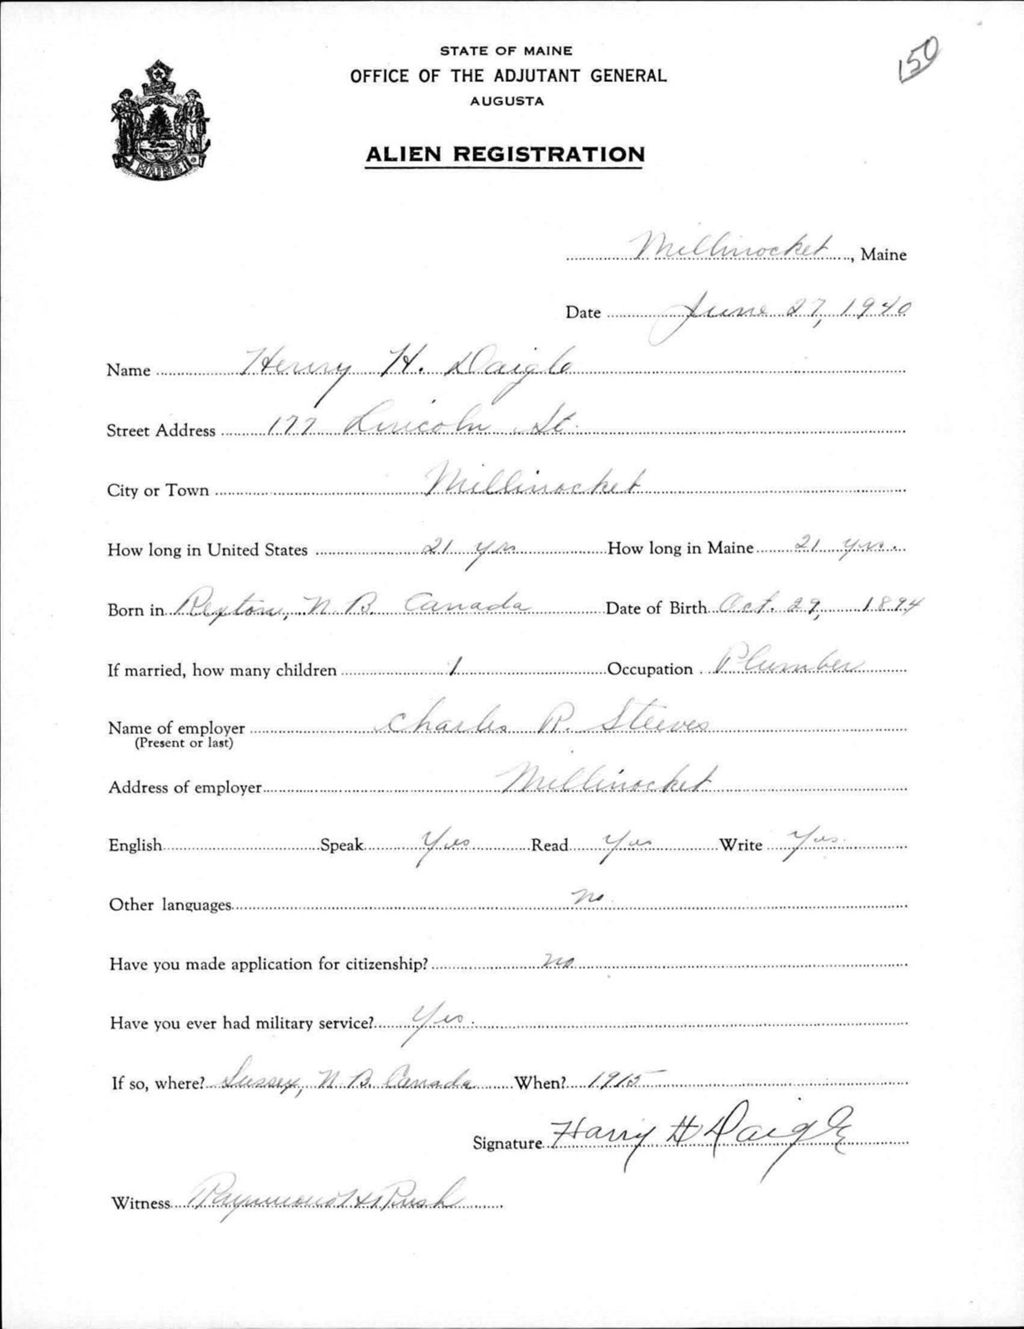 STATE OF MAINE
150
OFFICE OF THE ADJUTANT GENERAL
AUGUSTA
MAINE
ALIEN REGISTRATION
Millinocket, Maine
Date June 27, 1940
Name Henry H. Daigle
Street Address 177 Lincoln St.
City or Town Millinocket
How long in United States 21 yrs How long in Maine 21 yrs.
Born in Rexton, N B. Canada Date of Birth Oct. 29, 1894
If married, how many children 1 Occupation Plumber
Name of employer Charles R. Steeves
(Present or last)
Address of employer Millinocket
English Speak Yes Read Yes Write Yes.
Other languages no
Have you made application for citizenship? no
Have you ever had military service? Yes.
If so, where? Sussex, N B. Canada When? 1915
Signature Harry H Daigle
Witness Raymond H Rush